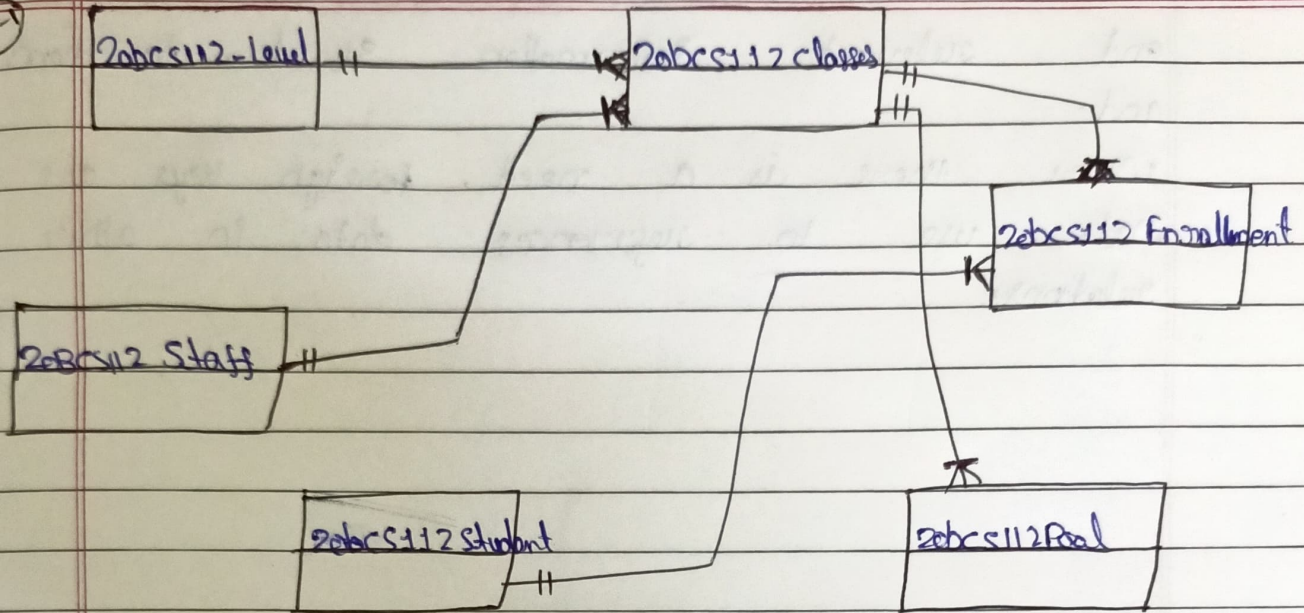 20bcs112-Level
20bcs112 Classes
20bcs112 Enrollment
20BCS112 Staff
20bcs112 Student
20bcs112 Pool